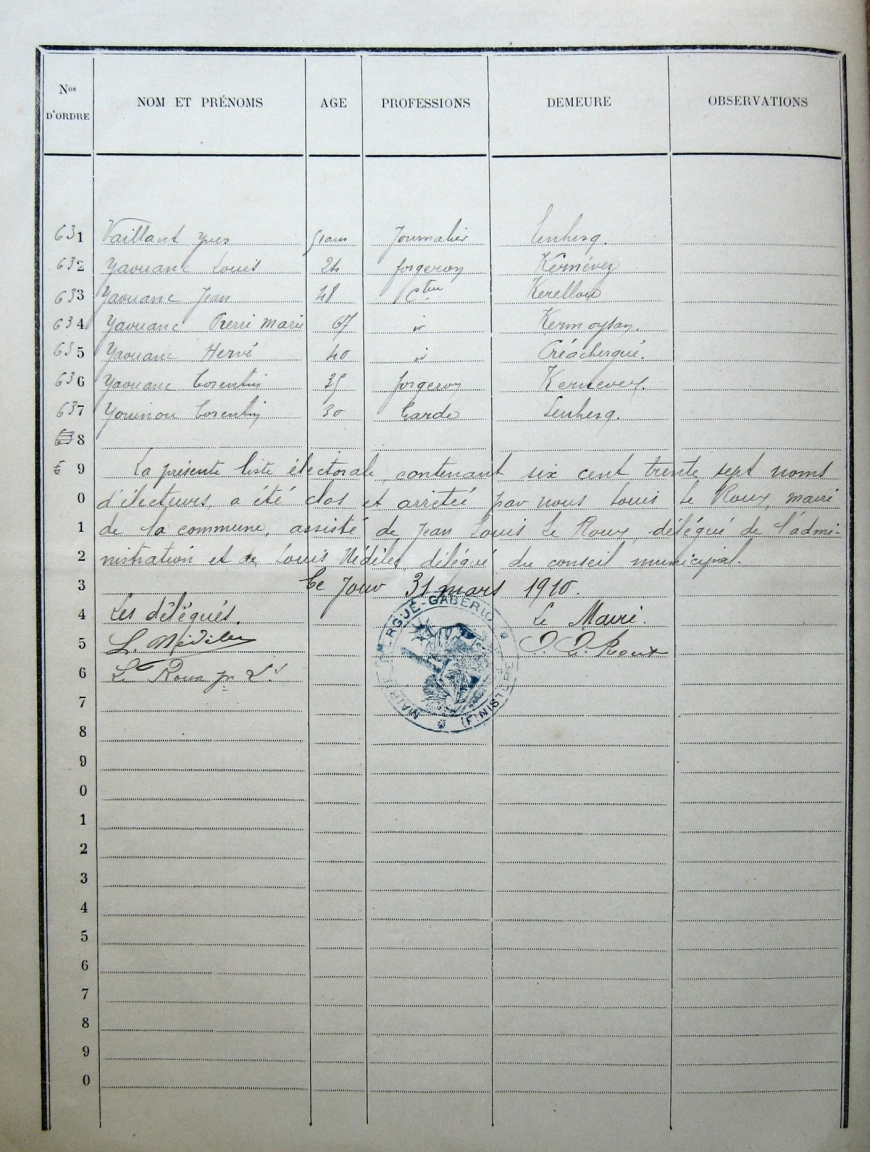 Nos D'ORDRE NOM ET PRÉNOMS AGE PROFESSIONS DEMEURE OBSERVATIONS
631 Vaillant Yves 51 ans Journalier Lenhesq.
632 Yaouanc Louis 24 forgeron Kernévez
633 Yaouanc Jean 48 Cteur
634 Yaouanc Pierre Marie 67 id Kermoysan.
635 Yaouanc Hervé 40 id Créachergué.
636 Yaouanc Corentin 35 forgeron Kernevez.
637 Youinou Corentin 30 Garde Lenhesq.
8
9 La présente liste électorale, contenant six cent trente sept noms
0 d'électeurs, a été clos et arrêtée par nous Louis Le Roux, maire
1 de la commune, assisté de Jean Louis Le Roux, délégué de l'admi-
2 nistration et de Louis Médélec, délégué du conseil municipal.
3 Ce Jour 31 mars 1910.
4 Les délégués. Le Maire.
5 Le Roux
6 Le Roux jn Ls
7
8
9
0
1
2
3
4
5
6
7
8
9
0
MAIRIE D'ERGUÉ-GABERIC (FINISTÈRE)